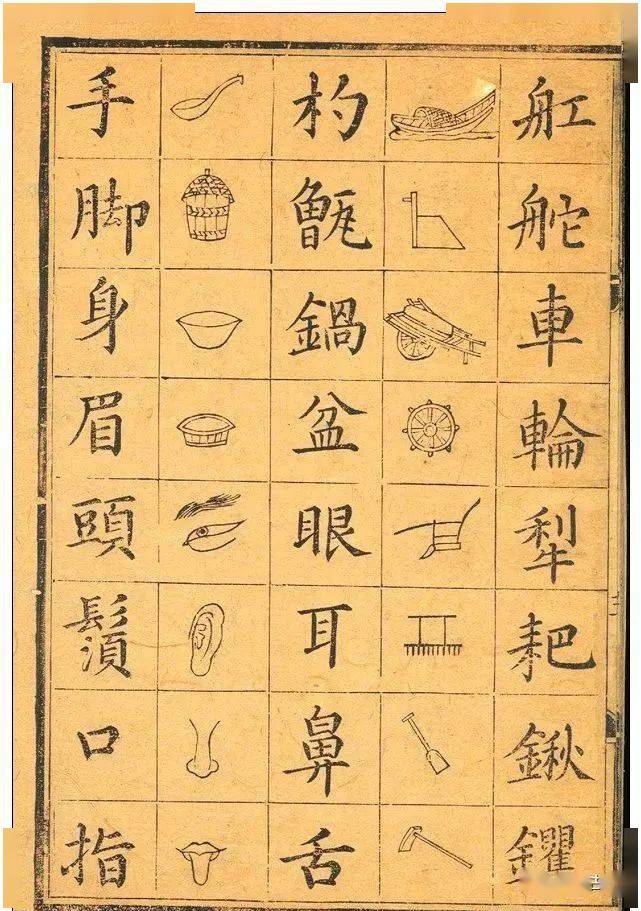 舡舵車輪犁耙鍬鑺
杓甑鍋盆眼耳鼻舌
手脚身眉頭鬚口指